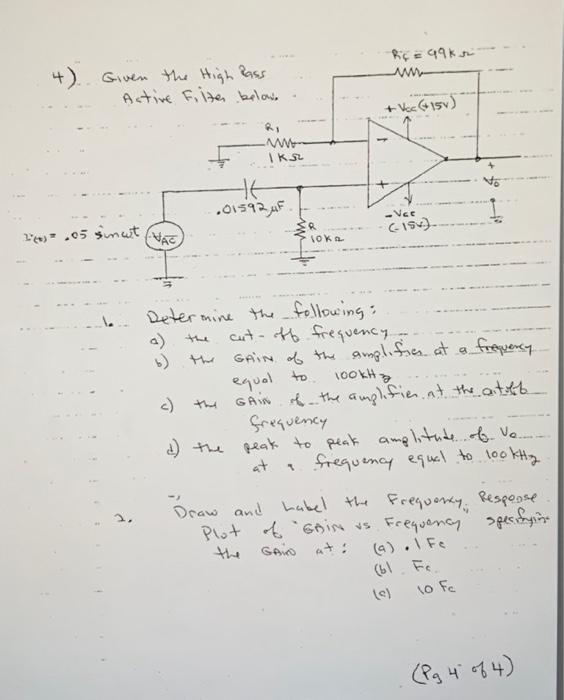 Rf = 99K Ω
4) Given the High Pass
Active Filter below.
+Vcc (+15V)
R1
1KΩ
-
+
+
Vo
-
.01592 µF
R
10KΩ
-Vcc
(-15V)
= .05 sinωt
VAC
1. Determine the following:
a) the cut-off frequency
b) the GAIN of the amplifier at a frequency
equal to 100KHz
c) the GAIN of the amplifier at the cutoff
frequency
d) the peak to peak amplitude of Vo
at a frequency equal to 100KHz
2. Draw and Label the Frequency Response
Plot of "GAIN vs Frequency" specifying
the GAIN at: (a) .1 Fc
(b) Fc
(c) 10 Fc
(Pg 4 of 4)